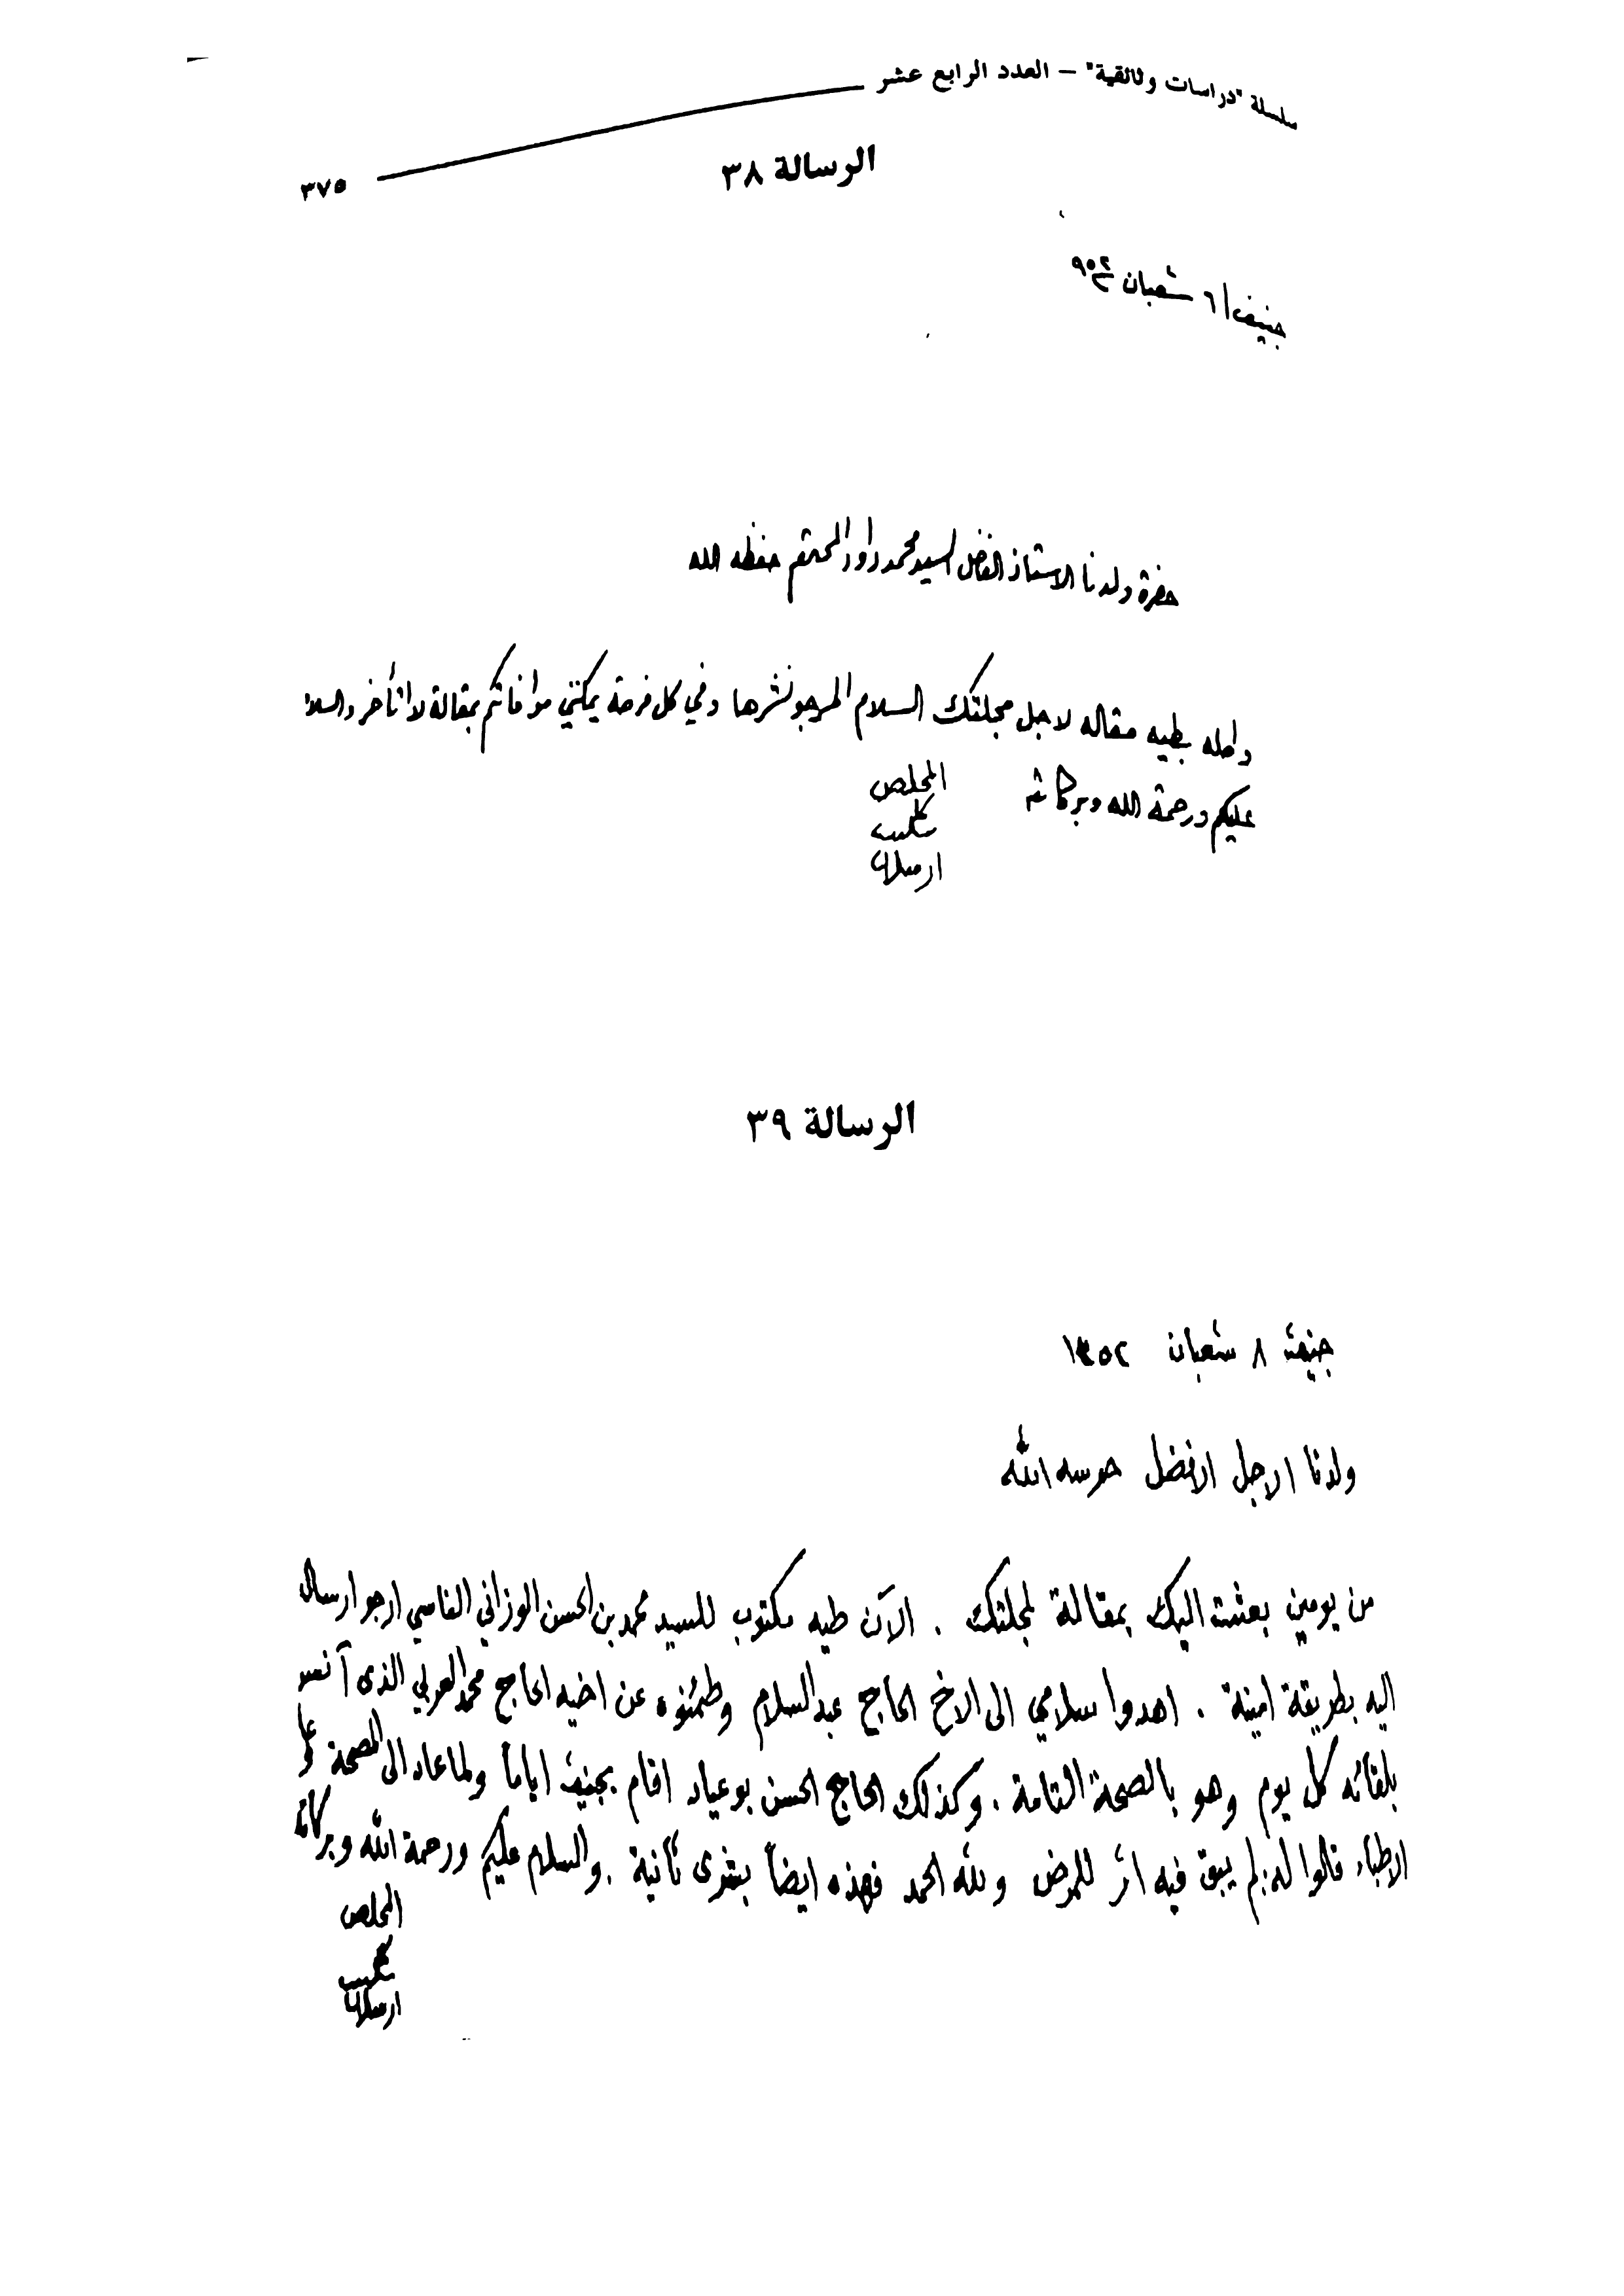 سلسلة "دراسات وثائقية" – العدد الرابع عشر
٣٧٥
الرسالة ٣٨
جنيف / ٦ شعبان
حضرة ولدنا الاستاذ الفاضل السيد محمد داود المحترم حفظه الله
واصله بطيه مقاله لاجل مجلتك السلام المرجو نشرها وفي كل فرصة يمكنني موافاتكم بمقالة لا اتأخر والسلام
عليكم ورحمة الله وبركاته
المخلص
شكيب
ارسلان
الرسالة ٣٩
جنيف ٨ شعبان ١٣٥٢
ولدنا الاجل الافضل حرسه الله
من يومين بعثت اليك بمقالة لمجلتك . الآن طيه مكتوب للسيد محمد بن الحسن الوزاني الفاسي ارجو ارساله
اليه بطريقة امينة . اهدوا سلامي الى الاخ الحاج عبد السلام وطمئنوه عن اخيه الحاج محمد العربي الذى آنس
بلقائه كل يوم وهو بالصحة التامة . وكذلك الحاج الحسن بوعياد اقام بجنيف اياماً ولما عاد الى المصحة
الاطباء قالوا له : لم يبق فيه اثر للمرض ولله الحمد فهذه ايضاً بشرى ثانية . والسلام عليكم ورحمة الله وبركاته
المخلص
شكيب
ارسلان